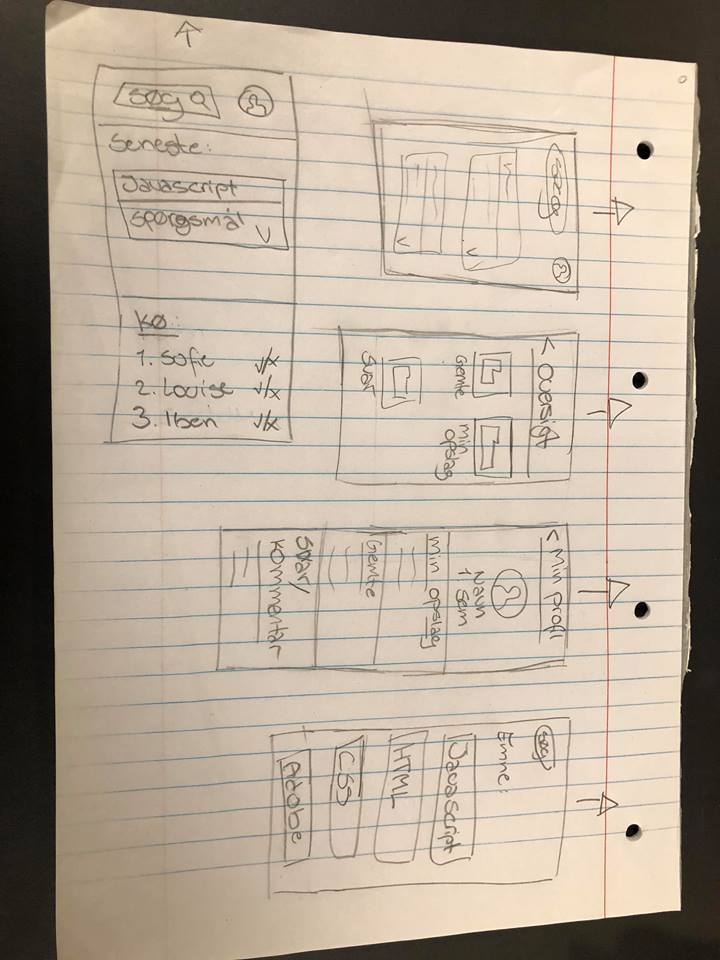 søg
seneste:
Javascript
spørgsmål
Kø:
1. Sofie
2. Louise
3. Iben
søg
< Oversigt
Gemte
min
opslag
Svar
< Min profil
Navn
1. sem
min opslag
Gemte
Svar/
kommentar
søg
Emne:
Javascript
HTML
CSS
Adobe